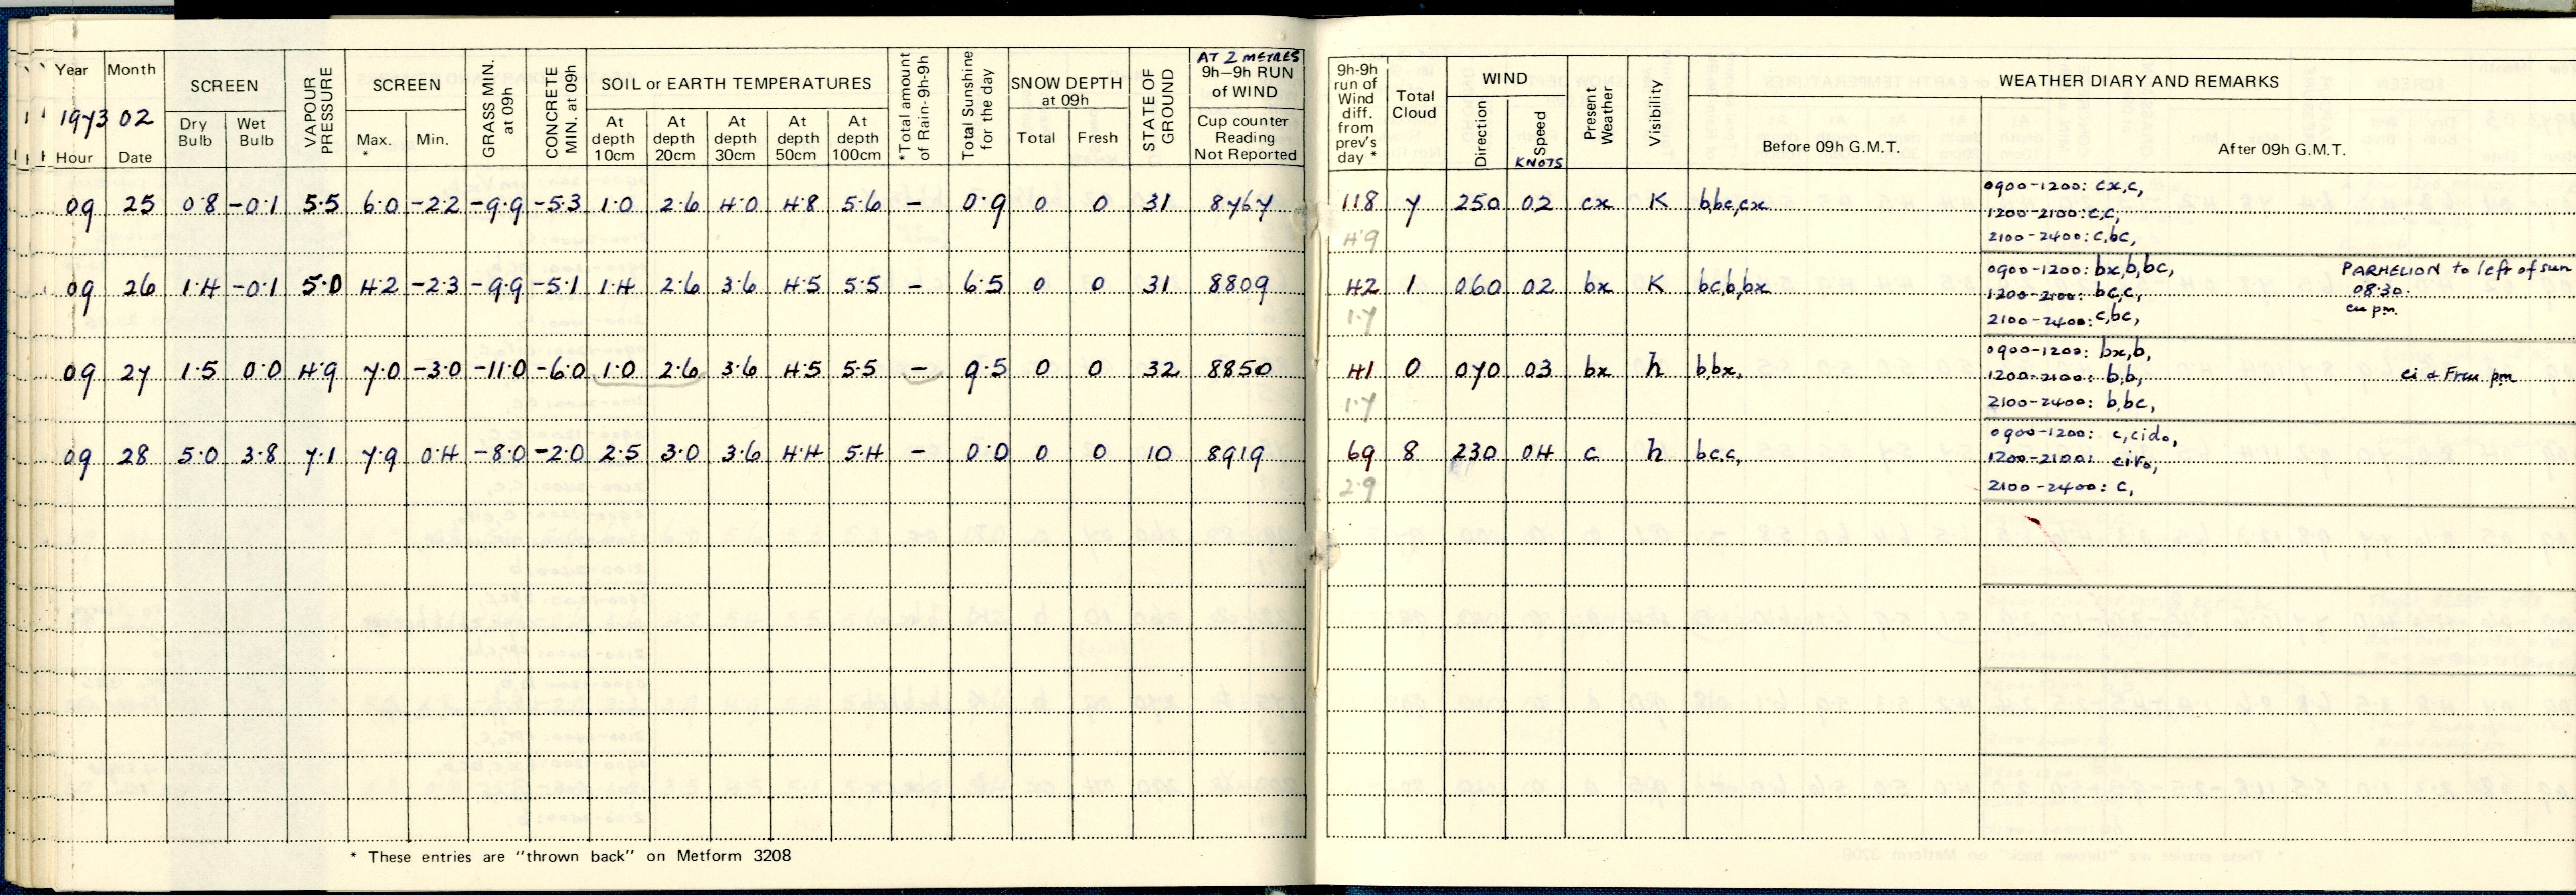 Year Month SCREEN VAPOUR PRESSURE SCREEN GRASS MIN. at 09h CONCRETE MIN. at 09h SOIL or EARTH TEMPERATURES *Total amount of Rain- 9h-9h Total Sunshine for the day SNOW DEPTH at 09h STATE OF GROUND AT 2 METRES 9h–9h RUN of WIND
1973 02
Hour Date Dry Bulb Wet Bulb Max. * Min. At depth 10cm At depth 20cm At depth 30cm At depth 50cm At depth 100cm Total Fresh Cup counter Reading Not Reported
09 25 0.8 -0.1 5.5 6.0 -2.2 -9.9 -5.3 1.0 2.6 4.0 4.8 5.6 - 0.9 0 0 31 8767
09 26 1.4 -0.1 5.0 4.2 -2.3 -9.9 -5.1 1.4 2.6 3.6 4.5 5.5 - 6.5 0 0 31 8809
09 27 1.5 0.0 4.9 7.0 -3.0 -11.0 -6.0 1.0 2.6 3.6 4.5 5.5 - 9.5 0 0 32 8850
09 28 5.0 3.8 7.1 7.9 0.4 -8.0 -2.0 2.5 3.0 3.6 4.4 5.4 - 0.0 0 0 10 8919
* These entries are "thrown back" on Metform 3208
9h-9h run of Wind diff. from prev's day * Total Cloud WIND Direction Speed KNOTS Present Weather Visibility WEATHER DIARY AND REMARKS
Before 09h G.M.T. After 09h G.M.T.
118 7 250 02 cx K b,bc,cx
4.9
0900-1200: cx,c,
1200-2100: c,c,
2100-2400: c,bc,
42 1 060 02 bx K bc,b,bx
1.7
0900-1200: bx,b,bc,
1200-2100: bc,c,
2100-2400: c,bc,
PARHELION to left of sun
08.30.
cu pm.
41 0 070 03 bx h b,bx,
1.7
0900-1200: bx,b,
1200-2100: b,b,
2100-2400: b,bc,
ci & Frcu pm
69 8 230 04 c h bc,c,
2.9
0900-1200: c,cido,
1200-2100: ciro,
2100-2400: c,